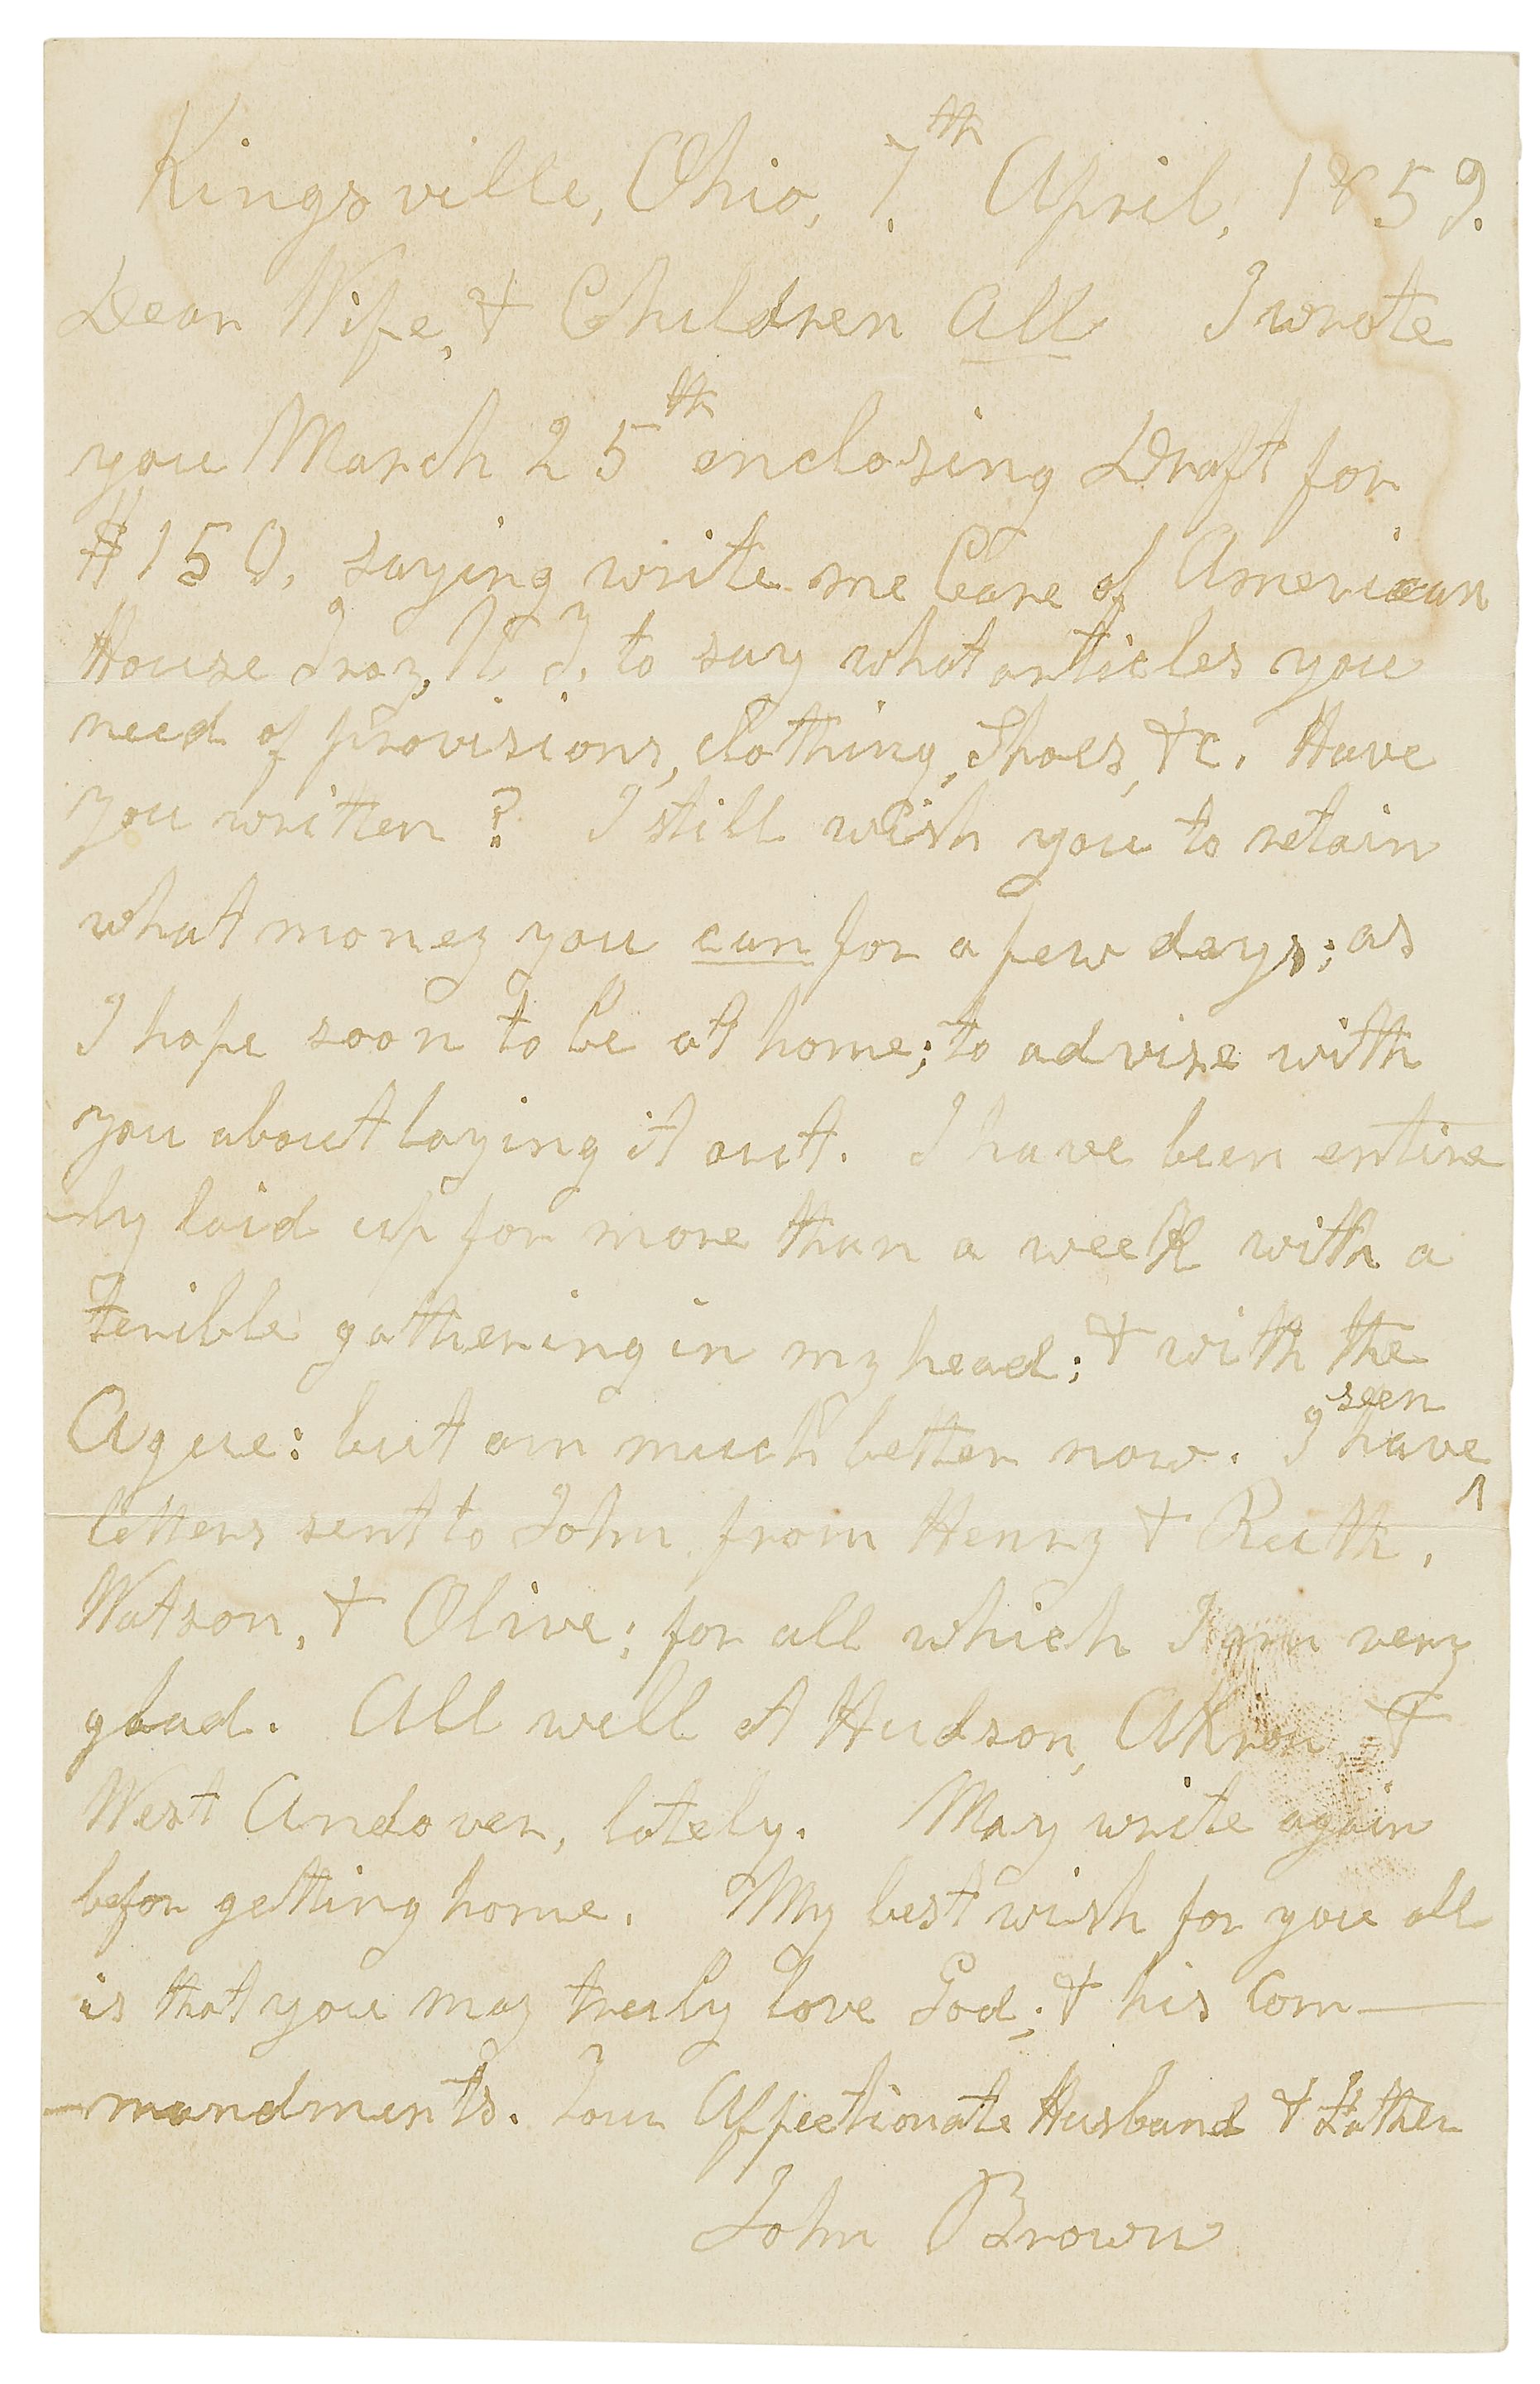 Kingsville, Ohio, 7th April, 1859.
Dear Wife, & Children all I wrote
you March 25th enclosing Draft for
$150, saying write me Care of American
House Troy, N Y, to say what articles you
need of provisions, clothing, Shoes, &c. Have
you written? I still wish you to retain
what money you can for a few days; as
I hope soon to be at home; to advise with
you about laying it out. I have been entire
-ly laid up for more than a week with a
terible gathering in my head; & with the
Ague: but am much better now. I have ^ seen
letters sent to John from Henry & Ruth,
Watson, & Olive; for all which I am very
glad. All well at Hudson, Akron, &
West Andover, lately. May write again
befor getting home. My best wish for you all
is that you may truly love God; & his Com—
-mandments. Your Affectionate Husband & Father
John Brown